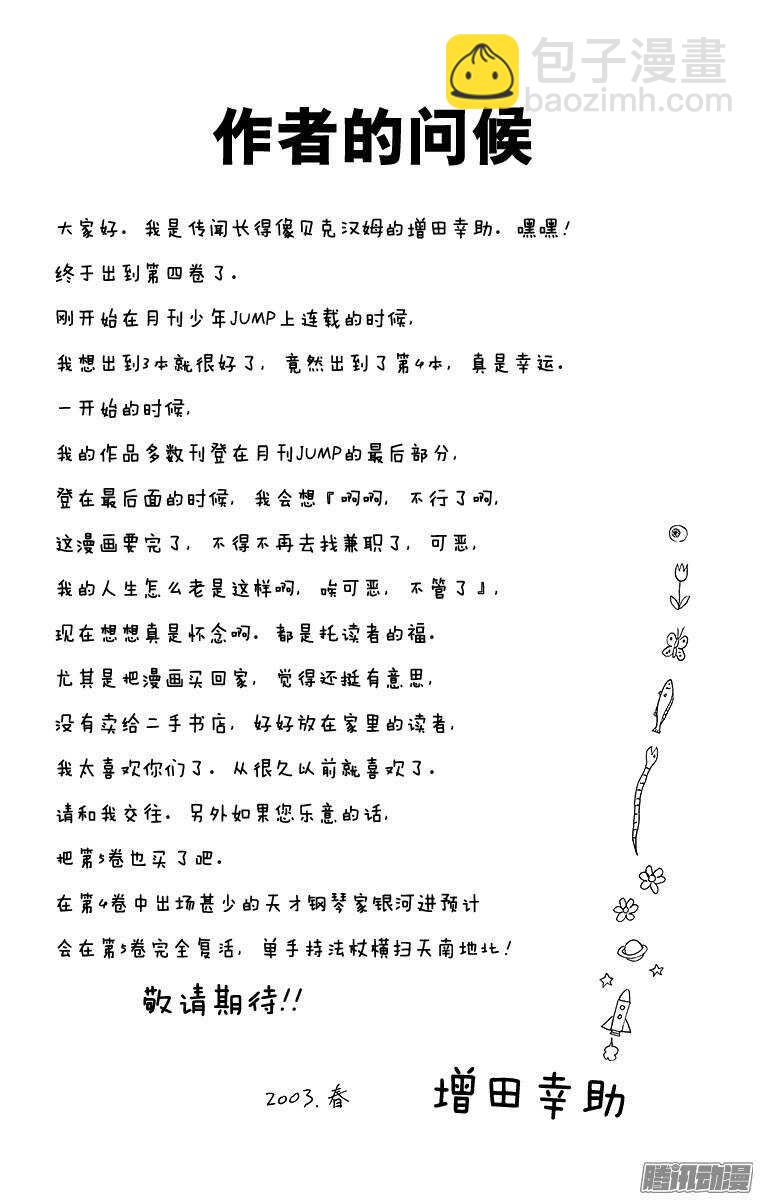 包子漫畫
baozimh.com
作者的问候
大家好．我是传闻长得像贝克汉姆的增田幸助．嘿嘿！
终于出到第四卷了．
刚开始在月刊少年JUMP上连载的时候，
我想出到3本就很好了，竟然出到了第4本，真是幸运．
一开始的时候，
我的作品多数刊登在月刊JUMP的最后部分，
登在最后面的时候，我会想『啊啊，不行了啊，
这漫画要完了，不得不再去找兼职了，可恶，
我的人生怎么老是这样啊，唉可恶，不管了』，
现在想想真是怀念啊．都是托读者的福．
尤其是把漫画买回家，觉得还挺有意思，
没有卖给二手书店，好好放在家里的读者，
我太喜欢你们了．从很久以前就喜欢了．
请和我交往．另外如果您乐意的话，
把第5卷也买了吧．
在第4卷中出场甚少的天才钢琴家银河进预计
会在第5卷完全复活，单手持法杖横扫天南地北！
敬请期待！！
2003.春
增田幸助
腾讯动漫